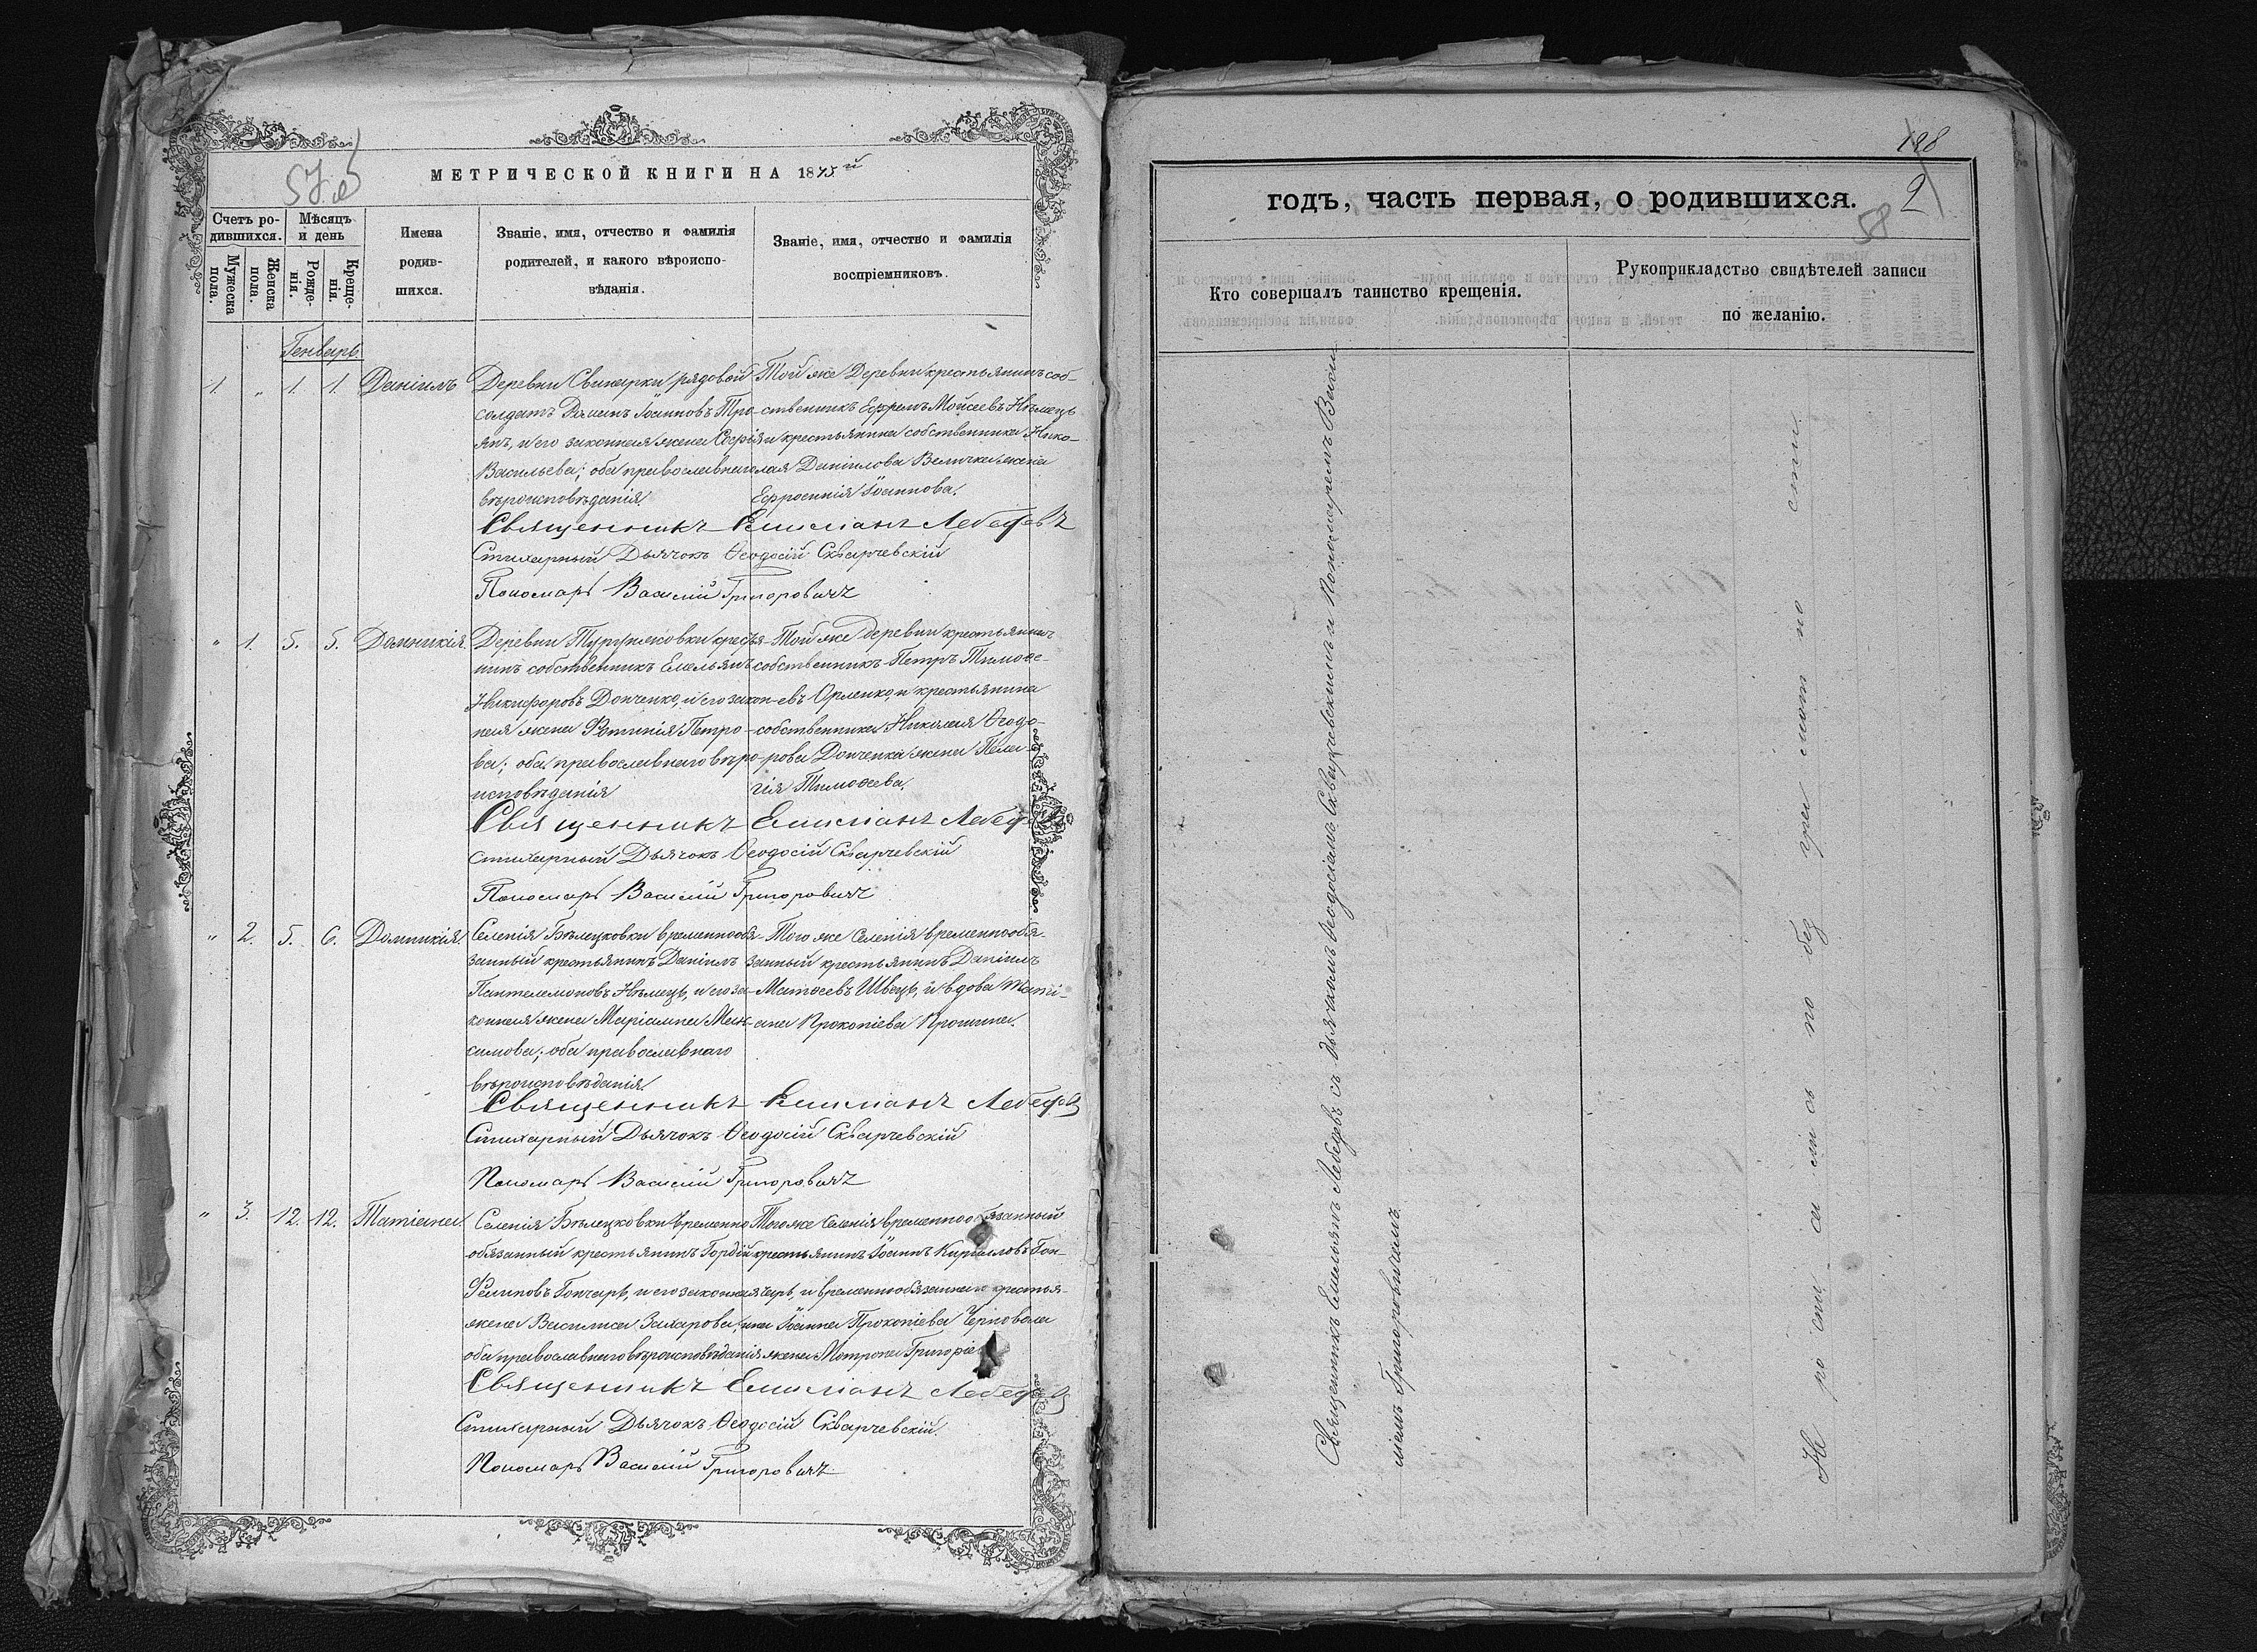 МЕТРИЧЕСКОЙ КНИГИ НА 1875й
Счетъ ро-
дившихся.
Мѣсяцъ
и день
Мужеска
пола.
Женска
пола.
Рожде-
нія.
Креще-
нія.
Имена
родив-
шихся.
Званіе, имя, отчество и фамилія
родителей, и какого вѣроиспо-
вѣданія.
Званіе, имя, отчество и фамилія
воспріемниковъ.
Генварь
1. " 1. 1. Даніилъ
Деревни Свинарки рядовой
солдатъ Даміанъ Іоанновъ Тро-
янъ, и его законная жена Софія
Васильева; оба православнаго
вѣроисповѣданія.
Той же Деревни крестьянинъ соб-
ственникъ Ефремъ Мойсеевъ Нѣмецъ
и крестьянина собственника Нико-
лая Даніилова Величка жена
Ефросинія Іоаннова.
Священникъ Емиліанъ Лебедевъ
Стихарный Дьячокъ Ѳеодосій Скварчевскій
Пономарь Василій Григоровичъ
" 1. 5. 5. Домникія.
Деревни крестья-
нинъ собственникъ Емельянъ
Никифоровъ Донченко, и его закон-
ная жена Фотинія Петро-
ва; оба православнаго вѣро-
исповѣданія
Той же деревни крестьянинъ
собственникъ Петръ Тимоѳе-
евъ Орленко, и крестьянина
собственника Николая Ѳеодо-
рова Донченка жена Пела-
гія Тимоѳеева.
Священникъ Емиліанъ Лебеде
Стихарный Дьячокъ Ѳеодосій Скварчевскій
Пономарь Василій Григоровичъ
" 2. 5. 6. Домникія.
Селенія Бѣлецковки временнообя-
занный крестьянинъ Даніилъ
Пантелемоновъ Нѣмецъ, и его за-
конная жена Маріамна Мак-
симова; оба православнаго
вѣроисповѣданія.
Того же Селенія временнообя-
занный крестьянинъ Даніилъ
Матѳеевъ Швецъ, и вдова Тати-
ана Прокопіева
Священникъ Емиліанъ Лебедев
Стихарный Дьячокъ Ѳеодосій Скварчевскій
Пономарь Василій Григоровичъ
" 3. 12. 12. Татіана
Селенія Бѣлецковки временно
обязанный крестьянинъ Гордій
Филиповъ Гончаръ, и его законная
жена Василиса Захарова;
оба православнаго вѣроисповѣданія
Того же Селенія временнообязанный
крестьянинъ Іоаннъ Кирилловъ Гон-
чаръ, и временнообязаннаго крестья-
нина Іоанна Прокопіева Черновола
жена Матрона Григоріе
Священникъ Емиліанъ Лебедев
Стихарный Дьячокъ Ѳеодосій Скварчевскій.
Пономарь Василій Григоровичъ
2
58
годъ, часть первая, о родившихся.
Кто совершалъ таинство крещенія.
Рукоприкладство свидѣтелей записи
по желанію.
Священникъ Емильянъ Лебедевъ съ дьячкомъ Ѳеодосіемъ Скварчевскимъ и Пономаремъ Васи-
ліемъ Григоровичемъ.